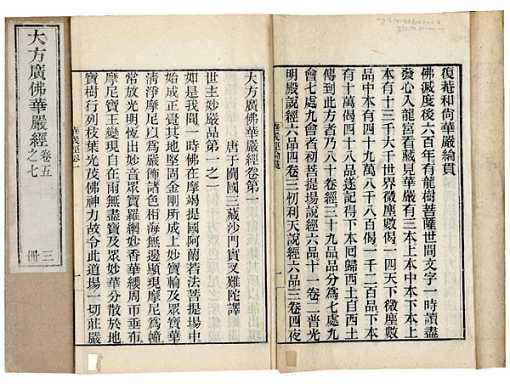 大方廣佛華嚴經
卷五之七
三冊
復菴和尚華嚴綸貫
佛滅度後六百年有龍樹菩薩世間文字一時讀盡
發心入龍宮看藏見華嚴有三本上本中本下本上
本有十三千大千世界微塵數偈一四天下微塵數
品中本有四十九萬八千八百偈一千二百品下本
有十萬偈四十八品遂記得下本回歸西土十日
傳到此方者乃八十卷經三十九品品分為
會七處九會者初菩提場說經六品十一卷二普光
明殿說經六品四卷三忉利天說經六品三卷四夜
大方廣佛華嚴經卷第一
唐于闐國三藏沙門實叉難陀譯
世主妙嚴品第一之一
如是我聞一時佛在摩竭提國阿蘭若法菩提場中
始成正覺其地堅固金剛所成上妙寶輪及眾寶華
清淨摩尼以為嚴飾諸色相海無邊顯現摩尼為幢
常放光明恆出妙音眾寶羅網妙香華纓周帀垂布
摩尼寶王變現自在雨無盡寶及眾妙華分散於地
寶樹行列枝葉光茂佛神力故令此道場一切莊嚴